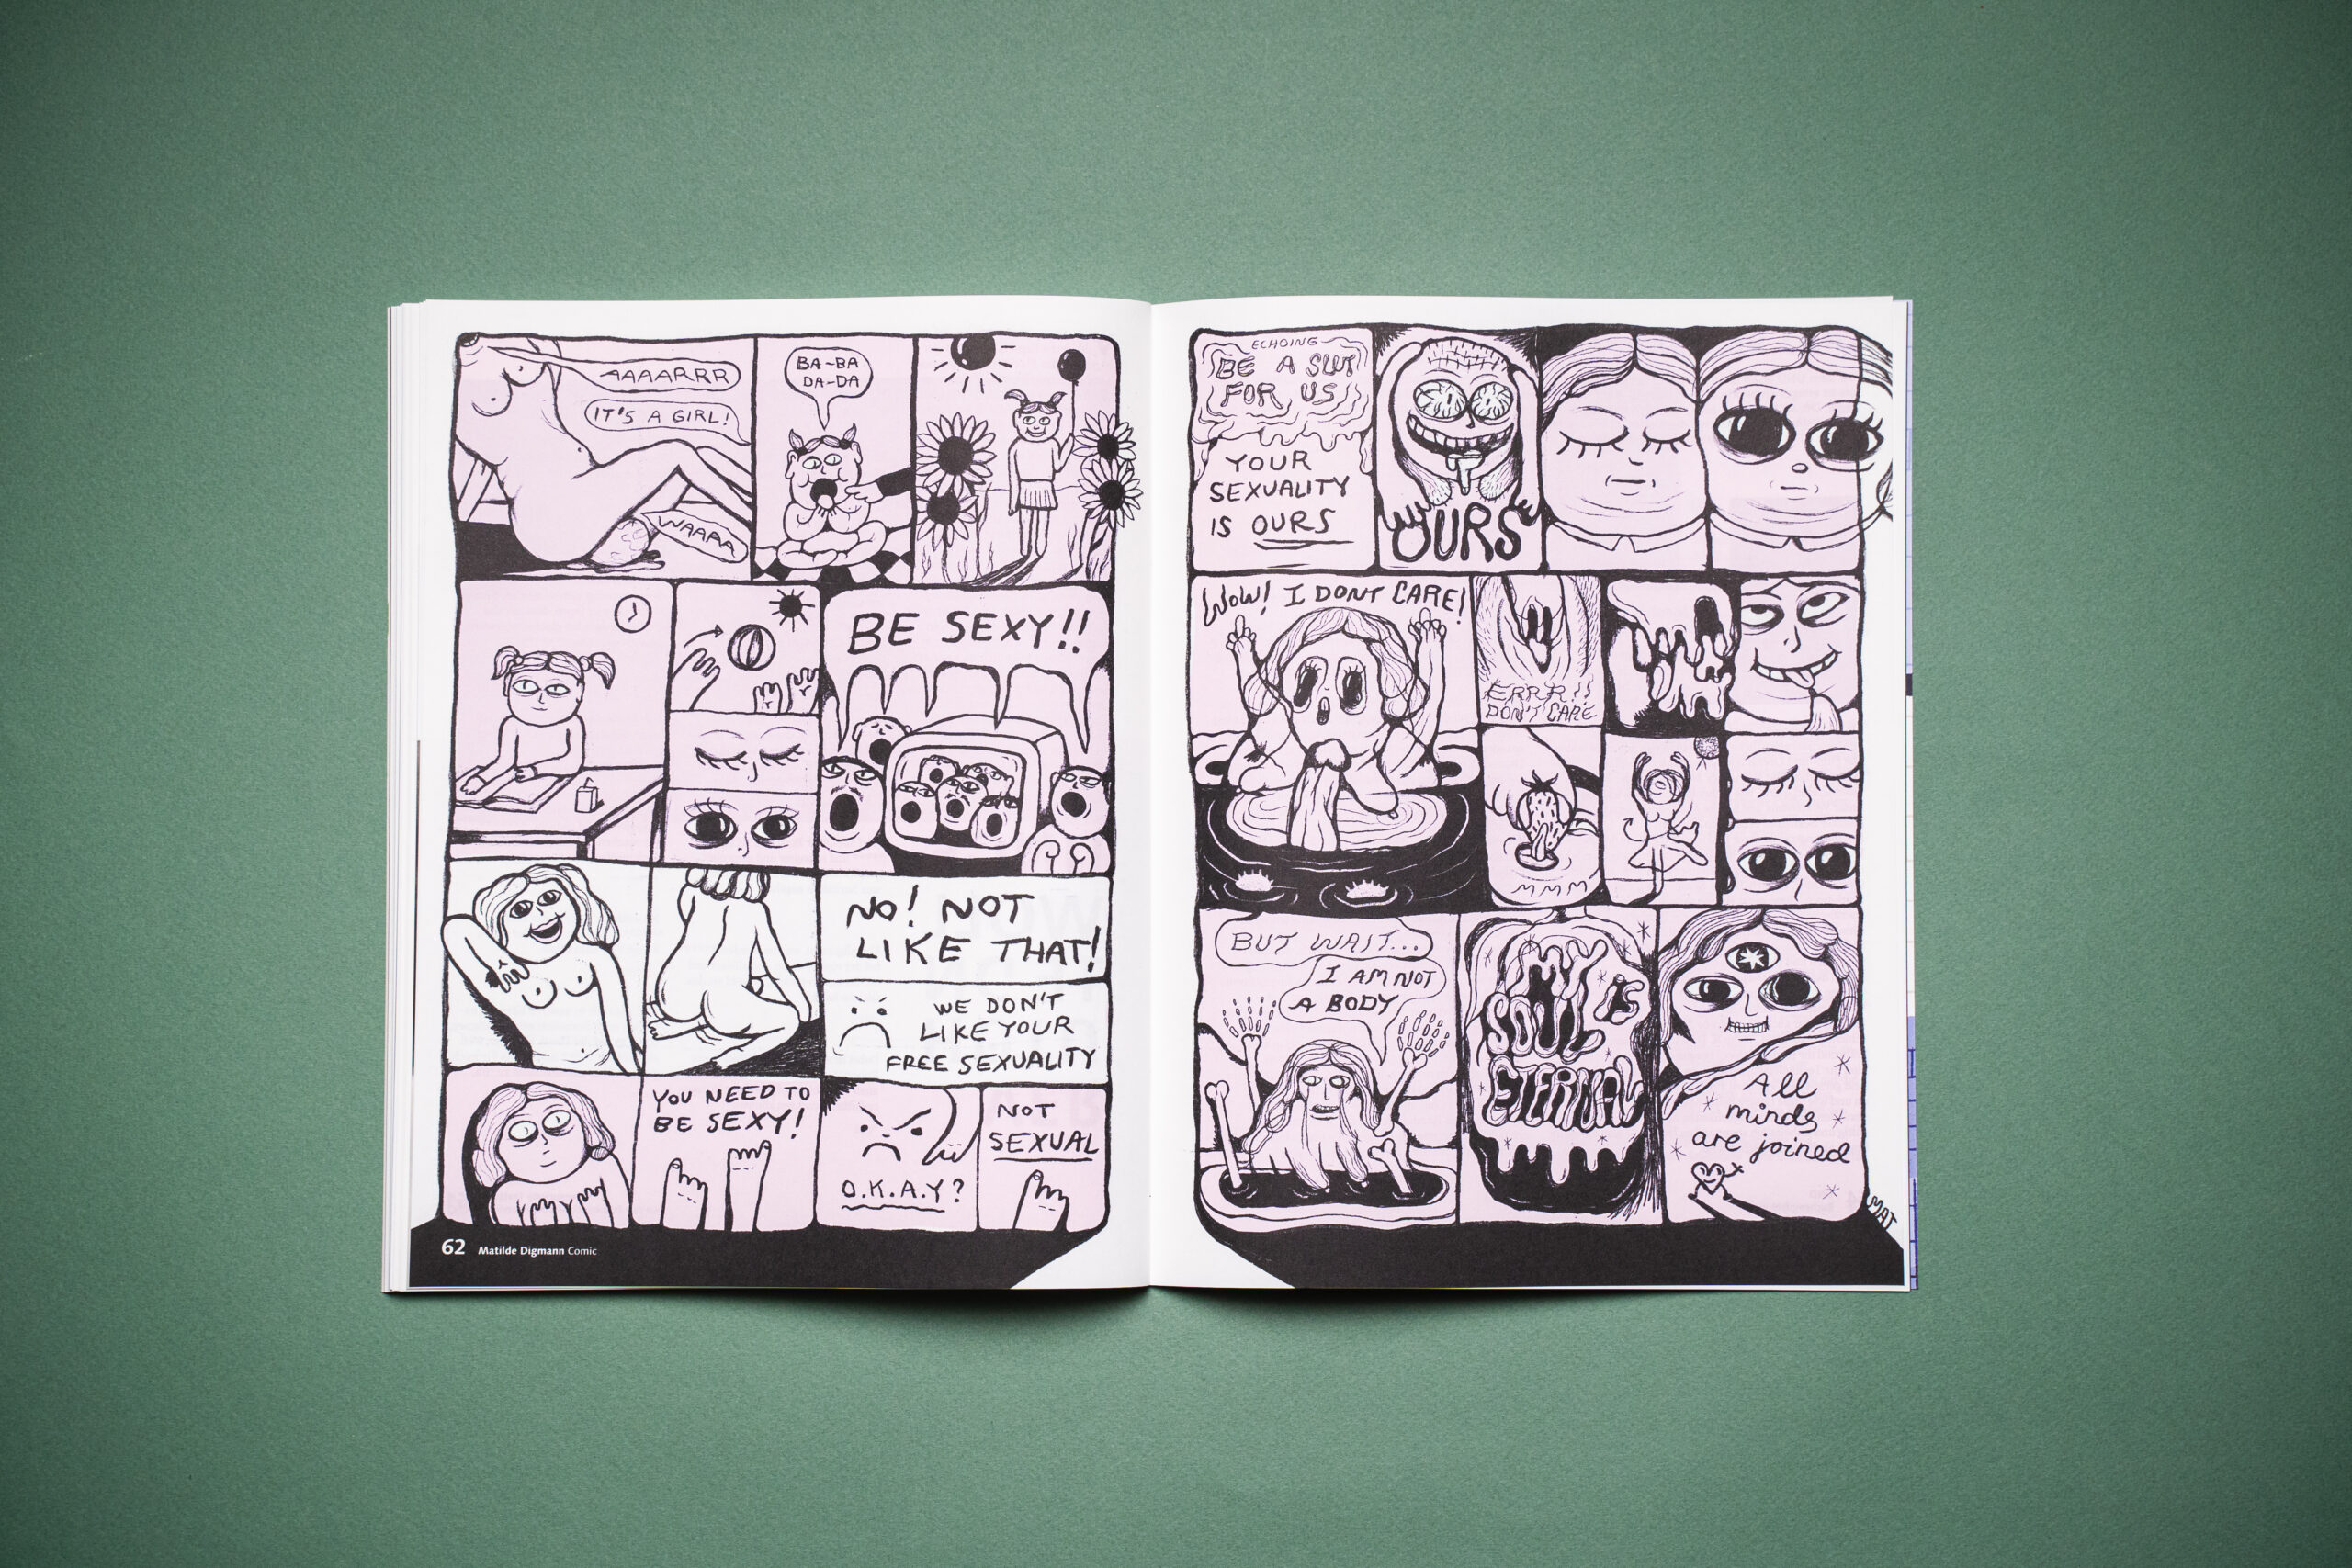 AAAARRR
IT'S A GIRL!
WAAAA
BA-BA
DA-DA
BE SEXY!!
NO! NOT
LIKE THAT!
WE DON'T
LIKE YOUR
FREE SEXUALITY
YOU NEED TO
BE SEXY!
O.K.A.Y?
NOT
SEXUAL
62 Matilde Digmann Comic
ECHOING
BE A SLUT
FOR US
YOUR
SEXUALITY
IS OURS
OURS
WOW! I DONT CARE!
ERRR!!
DON'T CARE
MMM
BUT WAIT...
I AM NOT
A BODY
MY
SOUL IS
ETERNAL
All
minds
are joined
MAT